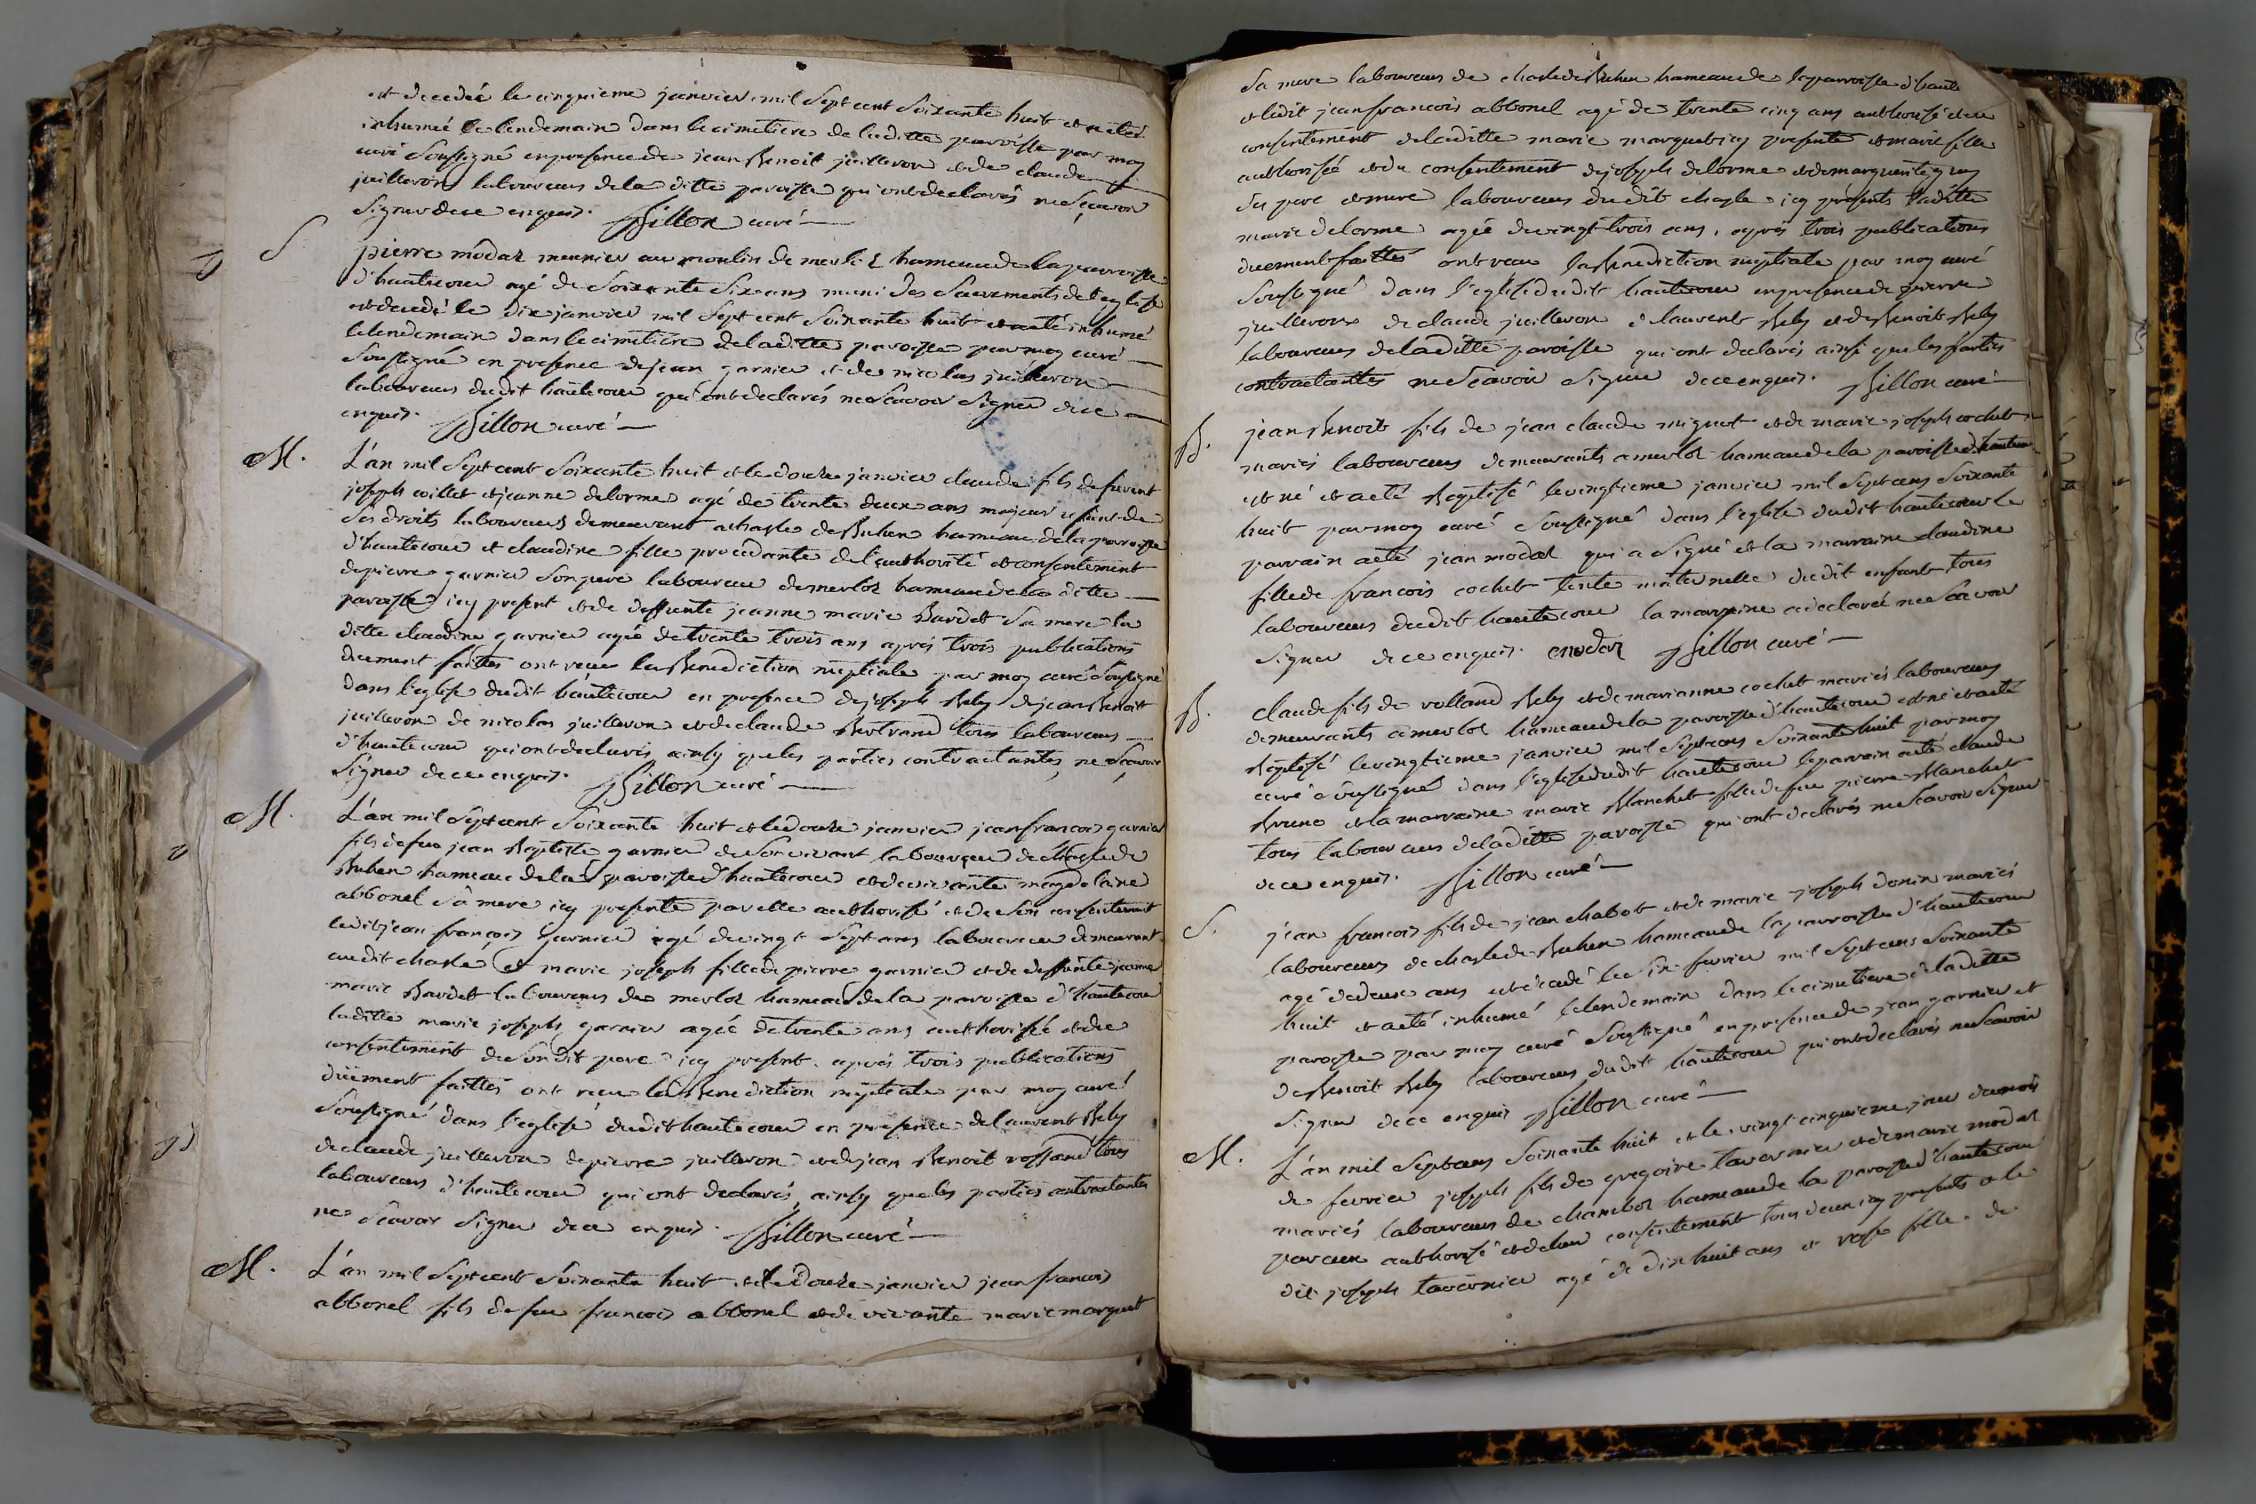 est decedée le cinquieme janvier mil sept cent soixante huit et a eté
inhumée le lendemain dans le cimetiere de laditte paroisse par moy
curé soussigné en presence de jean Benoit juilleron et de claude
juilleron laboureurs de la ditte paroisse qui ont declarés ne scavoir
signer de ce enquis. Billon curé
S
pierre modaz meunier au moulin de merloz hameau de la parroisse
d'hautecour agé de soixante six ans muni des sacrements de l'eglise
est decedé le dix janvier mil sept cent soixante huit et a eté inhumé
le lendemain dans le cimetiere de laditte paroisse par moy curé
soussigné en presence de jean garnier et de nicolas juilleron
laboureurs dudit hautecour qui ont declarés ne scavoir signer de ce
enquis. Billon curé
M. L'an mil sept cent soixante huit et le douze janvier claude fils de
joseph coillet et jeanne delorme agé de trente deux ans majeur de
ses droits laboureur demeurant a chasle de Buhen hameau de la paroisse
d'hautecour et claudine fille procedante de l'authorité et consentement
de pierre garnier son pere laboureur de merloz hameau de la ditte
paroisse icy present et de deffunte jeanne marie Bardet sa mere la
ditte claudine garnier agée de trente trois ans aprés trois publications
duement faittes ont recu la Benediction nuptiale par moy curé soussigné
dans l'eglise dudit hautecour en presence de joseph Rely de jean Benoit
juilleron de nicolas juilleron et de claude Bertrand tous laboureurs
d'hautecour qui ont declarés ainsy que les parties contractantes ne scavoir
signer de ce enquis. Billon curé
M. L'an mil sept cent soixante huit et le douze janvier jean francois garnier
fils de feu jean Baptiste garnier de son vivant laboureur de chasle de
Buhen hameau de la paroisse d'hautecour et de vivante magdelaine
abbonel sa mere icy presente par elle authorisé et de son consentement
ledit jean francois garnier agé de vingt sept ans laboureur demeurant
audit chasle et marie joseph fille de pierre garnier et de deffunte jeanne
marie Bardet laboureurs de merloz hameau de la paroisse d'hautecour
laditte marie joseph garnier agée de trente ans authorisée et du
consentement de son dit pere icy present aprés trois publications
duëment faittes ont recu la Benediction nuptiale par moy curé
soussigné dans l'eglise dudit hautecour en presence de laurent Rely
de claude juilleron de pierre juilleron et de jean Benoit rolland tous
laboureurs d'hautecour qui ont declarés ainsy que les parties contractantes
ne scavoir signer de ce enquis. Billon curé
M. L'an mil sept cent soixante huit et le douze janvier jean francois
abbonel fils de feu francois abbonel et de vivante marie marguet
sa mere laboureurs de chasle de Buhen hameau de la parroisse d'haute
et ledit jean francois abbonel agé de trente cinq ans authorisé et du
consentement de laditte marie marguet icy presente et marie fille
authorisée et du consentement de joseph delorme et de marguerite
ses pere et mere laboureurs dudit chasle icy presents laditte
marie delorme agée de vingt trois ans, aprés trois publications
duement faittes ont recu la Benediction nuptiale par moy curé
soussigné dans l'eglise dudit hautecour en presence de pierre
juilleron de claude juilleron de laurent Rely et de Benoit Rely
laboureurs de laditte paroisse qui ont declarés ainsi que les parties
contractantes ne scavoir signer de ce enquis. Billon curé
B. jean Benoit fils de jean claude miguet et de marie joseph cochet
mariés laboureurs demeurants a merloz hameau de la paroisse d'hautecour
est né et a eté Baptisé le vingtieme janvier mil sept cens soixante
huit par moy curé soussigné dans l'eglise dudit hautecour le
parrain a eté jean modaz qui a signé et la marraine claudine
fille de francois cochet tente maternelle dudit enfant tous
laboureurs dudit hautecour la marraine a declaré ne scavoir
signer de ce enquis. modaz Billon curé
B. claude fils de rolland Rely et de marianne cochet mariés laboureurs
demeurants a merloz hameau de la paroisse d'hautecour est né et a eté
Baptisé le vingtieme janvier mil sept cens soixante huit par moy
curé soussigné dans l'eglise dudit hautecour le parrain a eté claude
Brune et la marraine marie Blanchet fille de feu pierre Blanchet
tous laboureurs de laditte paroisse qui ont declarés ne scavoir signer
de ce enquis. Billon curé
S. jean francois fils de jean chabot et de marie joseph donin mariés
laboureurs de chasle de Buhen hameau de la parroisse d'hautecour
agé de deux ans est decedé le six fevrier mil sept cens soixante
huit et a eté inhumé le lendemain dans le cimetiere de laditte
paroisse par moy curé soussigné en presence de jean garnier et
de Benoit Rely laboureurs dudit hautecour qui ont declarés ne scavoir
signer de ce enquis Billon curé
M. L'an mil sept cens soixante huit et le vingt cinquieme jour du mois
de fevrier joseph fils de gregoire tavernier et de marie modaz
mariés laboureurs de chamboz hameau de la paroisse d'hautecour
par eux authorisé et de leur consentement tous deux icy presents et le
dit joseph tavernier agé de dix huit ans et rose fille de